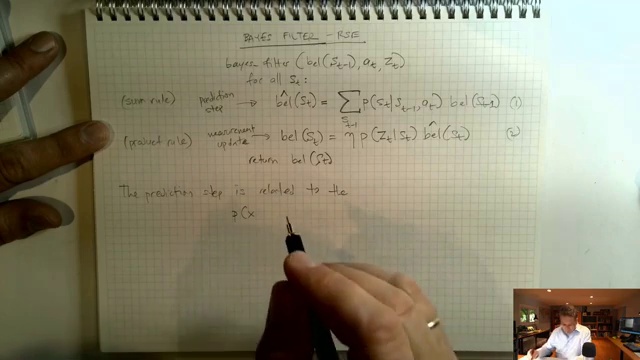 BAYES FILTER - RSE
bayes filter (bel(S_{t-1}), a_t, Z_t)
for all S_t:
(sum rule) prediction step → b̂el(S_t) = Σ_{S_{t-1}} p(S_t|S_{t-1}, a_t) bel(S_{t-1}) (1)
(product rule) measurement update → bel(S_t) = η p(Z_t|S_t) b̂el(S_t) (2)
return bel(S_t)
The prediction step is related to the
p(x